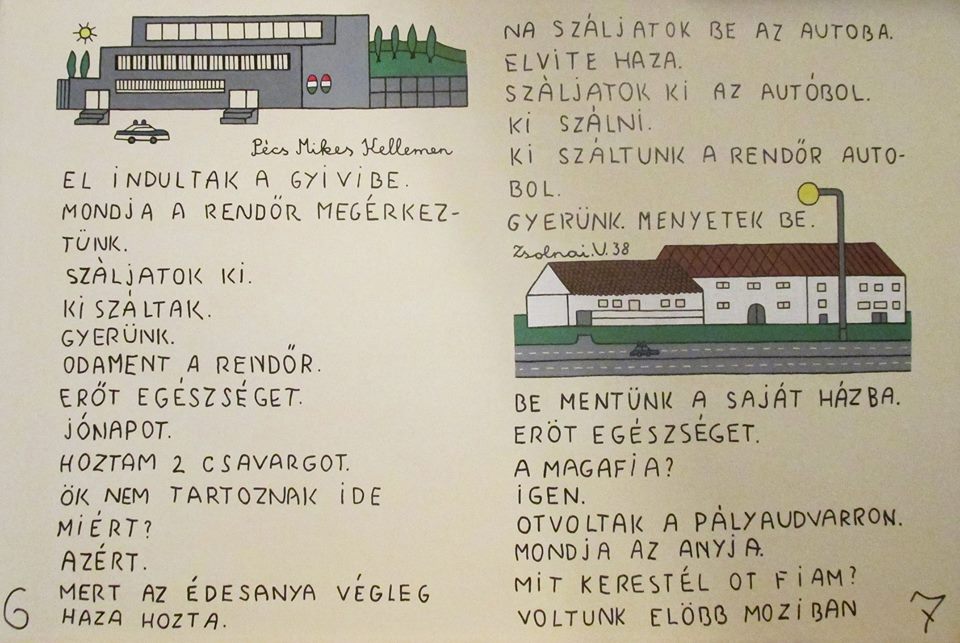 Pécs Mikes Kellemen
EL INDULTAK A GYIVIBE.
MONDJA A RENDŐR MEGÉRKEZ-
TÜNK.
SZÀLJATOK KI.
KI SZÁLTAK.
GYERÜNK.
ODAMENT A RENDŐR.
ERŐT EGÉSZSÉGET.
JÓNAPOT.
HOZTAM 2 CSAVARGOT.
ÖK NEM TARTOZNAK IDE
MIÉRT?
AZÉRT.
MERT AZ ÉDESANYA VÉGLEG
HAZA HOZTA.
6
NA SZÁLJATOK BE AZ AUTOBA.
ELVITE HAZA.
SZÀLJATOK KI AZ AUTÓBOL.
KI SZÁLNI.
KI SZÁLTUNK A RENDŐR AUTO-
BOL.
GYERÜNK. MENYETEK BE.
Zsolnai.V.38
BE MENTÜNK A SAJÁT HÁZBA.
ERÖT EGÉSZSÉGET.
A MAGAFIA?
IGEN.
OTVOLTAK A PÁLYAUDVARRON.
MONDJA AZ ANYJA.
MIT KERESTÉL OT FIAM?
VOLTUNK ELÖBB MOZIBAN
7